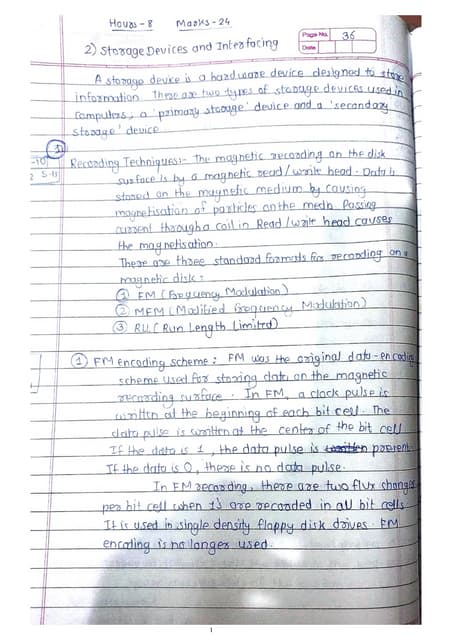 Hours - 8 Marks - 24
Page No. 36
Date
2) Storage Devices and Interfacing
A storage device is a hardware device designed to store
information. There are two types of storage devices used in
computers, a 'primary storage' device and a 'secondary
storage' device
1
Recording Techniques:- The magnetic recording on the disk
surface is by a magnetic read/write head. Data is
stored on the magnetic medium by causing
magnetisation of particles on the medn. Passing
current through a coil in Read/write head causes
the magnetisation.
There are three standard formats for recording on a
magnetic disk:
① FM (Frequency Modulation)
② MFM (Modified Frequency Modulation)
③ RLL (Run Length Limited)
① FM encoding scheme: FM was the original data-encoding
scheme used for storing data on the magnetic
recording surface. In FM, a clock pulse is
written at the beginning of each bit cell. The
data pulse is written at the center of the bit cell
If the data is 1, the data pulse is present
If the data is 0, there is no data pulse.
In FM recording, there are two flux changes
per bit cell when 1's are recorded in all bit cells
It is used in single density floppy disk drives. FM
encoding is no longer used.
1